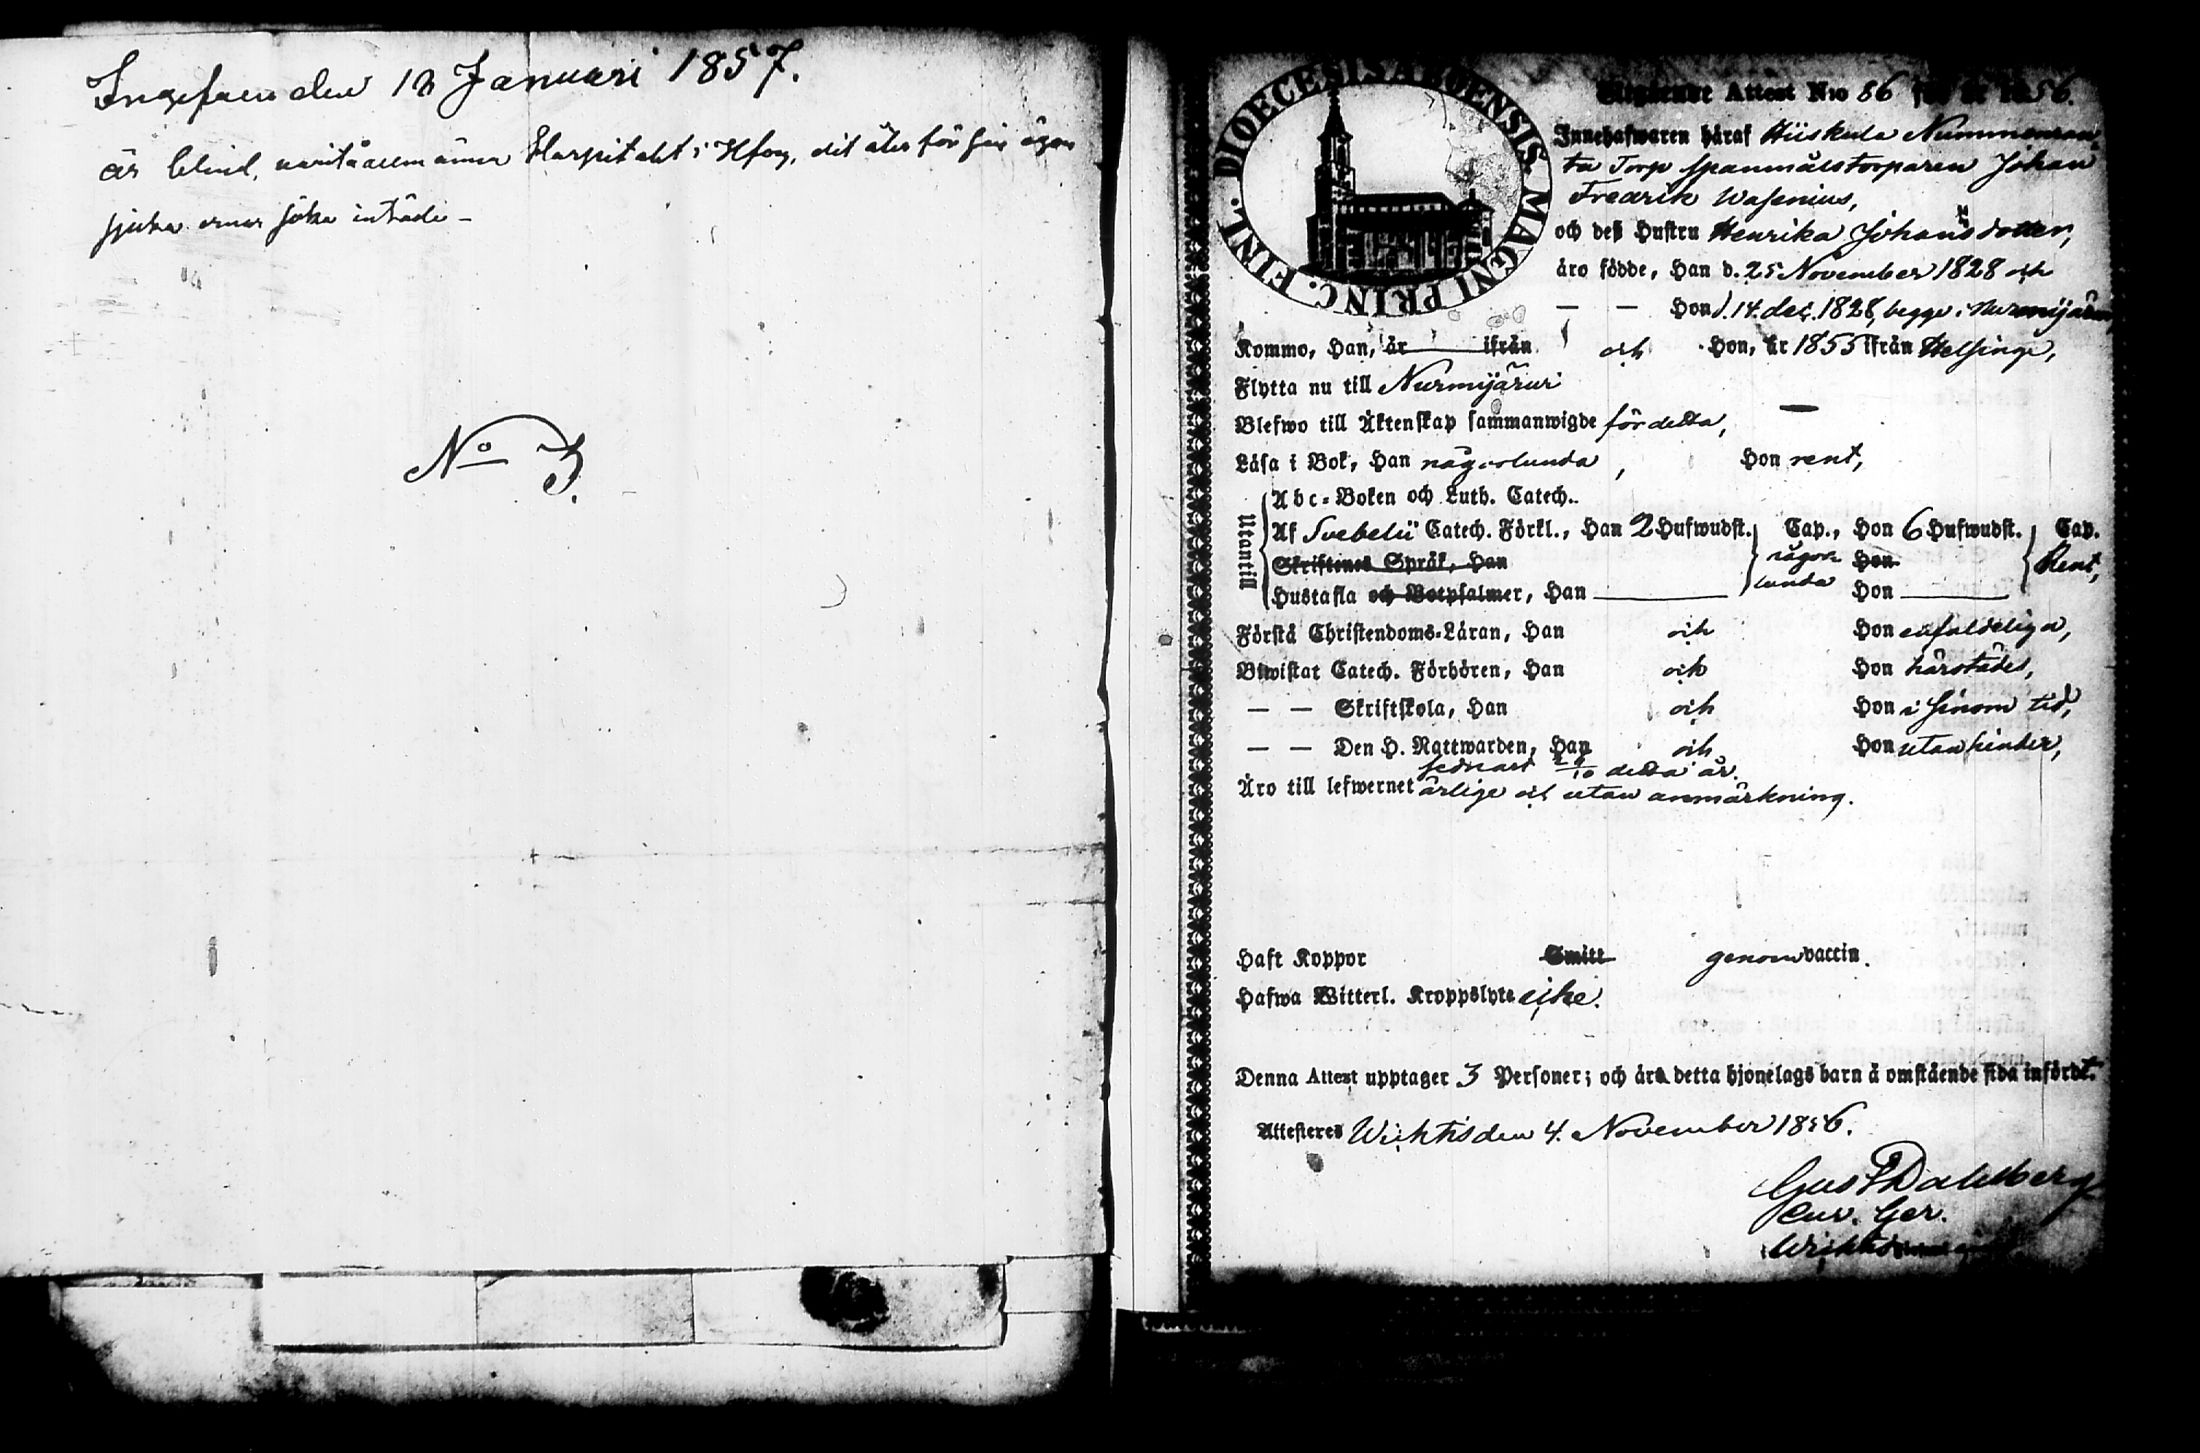 Ingifven den 13 Januari 1857.
är blind, varit å allmänna Hospitalet i Hfors, dit åter för sin ögon
sjuka ernar söka inträde –
No 3.
DIOECESIS ABOENSIS MAGNI PRINC. FINL.
Utgående Attest N:o 86 för år 1856.
Innehafwaren häraf Hiiskula Nummenran-
ta Torp Spanmålstorparen Johan
Fredrik Wasenius,
och deß Hustru Henrika Johansdotter,
äro födde, Han d. 25 November 1828 och
— — Hon d. 14 dec. 1828, begge i Nurmijärvi
Kommo, Han, år ifrån och Hon, år 1855 ifrån Helsinge,
Flytta nu till Nurmijärvi
Blefwo till Äktenskap sammanwigde för detta, —
Läsa i Bok, Han någorlunda, Hon rent,
Utantill
Abc-Boken och Luth. Catech.
Af Svebelii Catech. Förkl., Han 2 Hufwudst. Cap., Hon 6 Hufwudst. Cap.
Skriftenes Språk, Han någor- Hon Rent,
Hustafla och Botpsalmer, Han lunda Hon
Förstå Christendoms-Läran, Han och Hon enfaldeliga,
Biwistat Catech. Förhören, Han och Hon härstädes,
— — Skriftskola, Han och Hon i sinom tid,
— — Den H. Nattwarden, Han och Hon utan hinder,
sednast 26/10 detta år.
Äro till lefwernet ärlige och utan anmärkning.
Haft Koppor Smitt genom vaccin.
Hafwa Witterl. Kroppslyte icke.
Denna Attest upptager 3 Personer; och äro detta hjonelags barn å omstående sida infördt.
Attesteres Wichtis den 4. November 1856.
Gust Dahlberg
Cur. Ger.
Wichtis